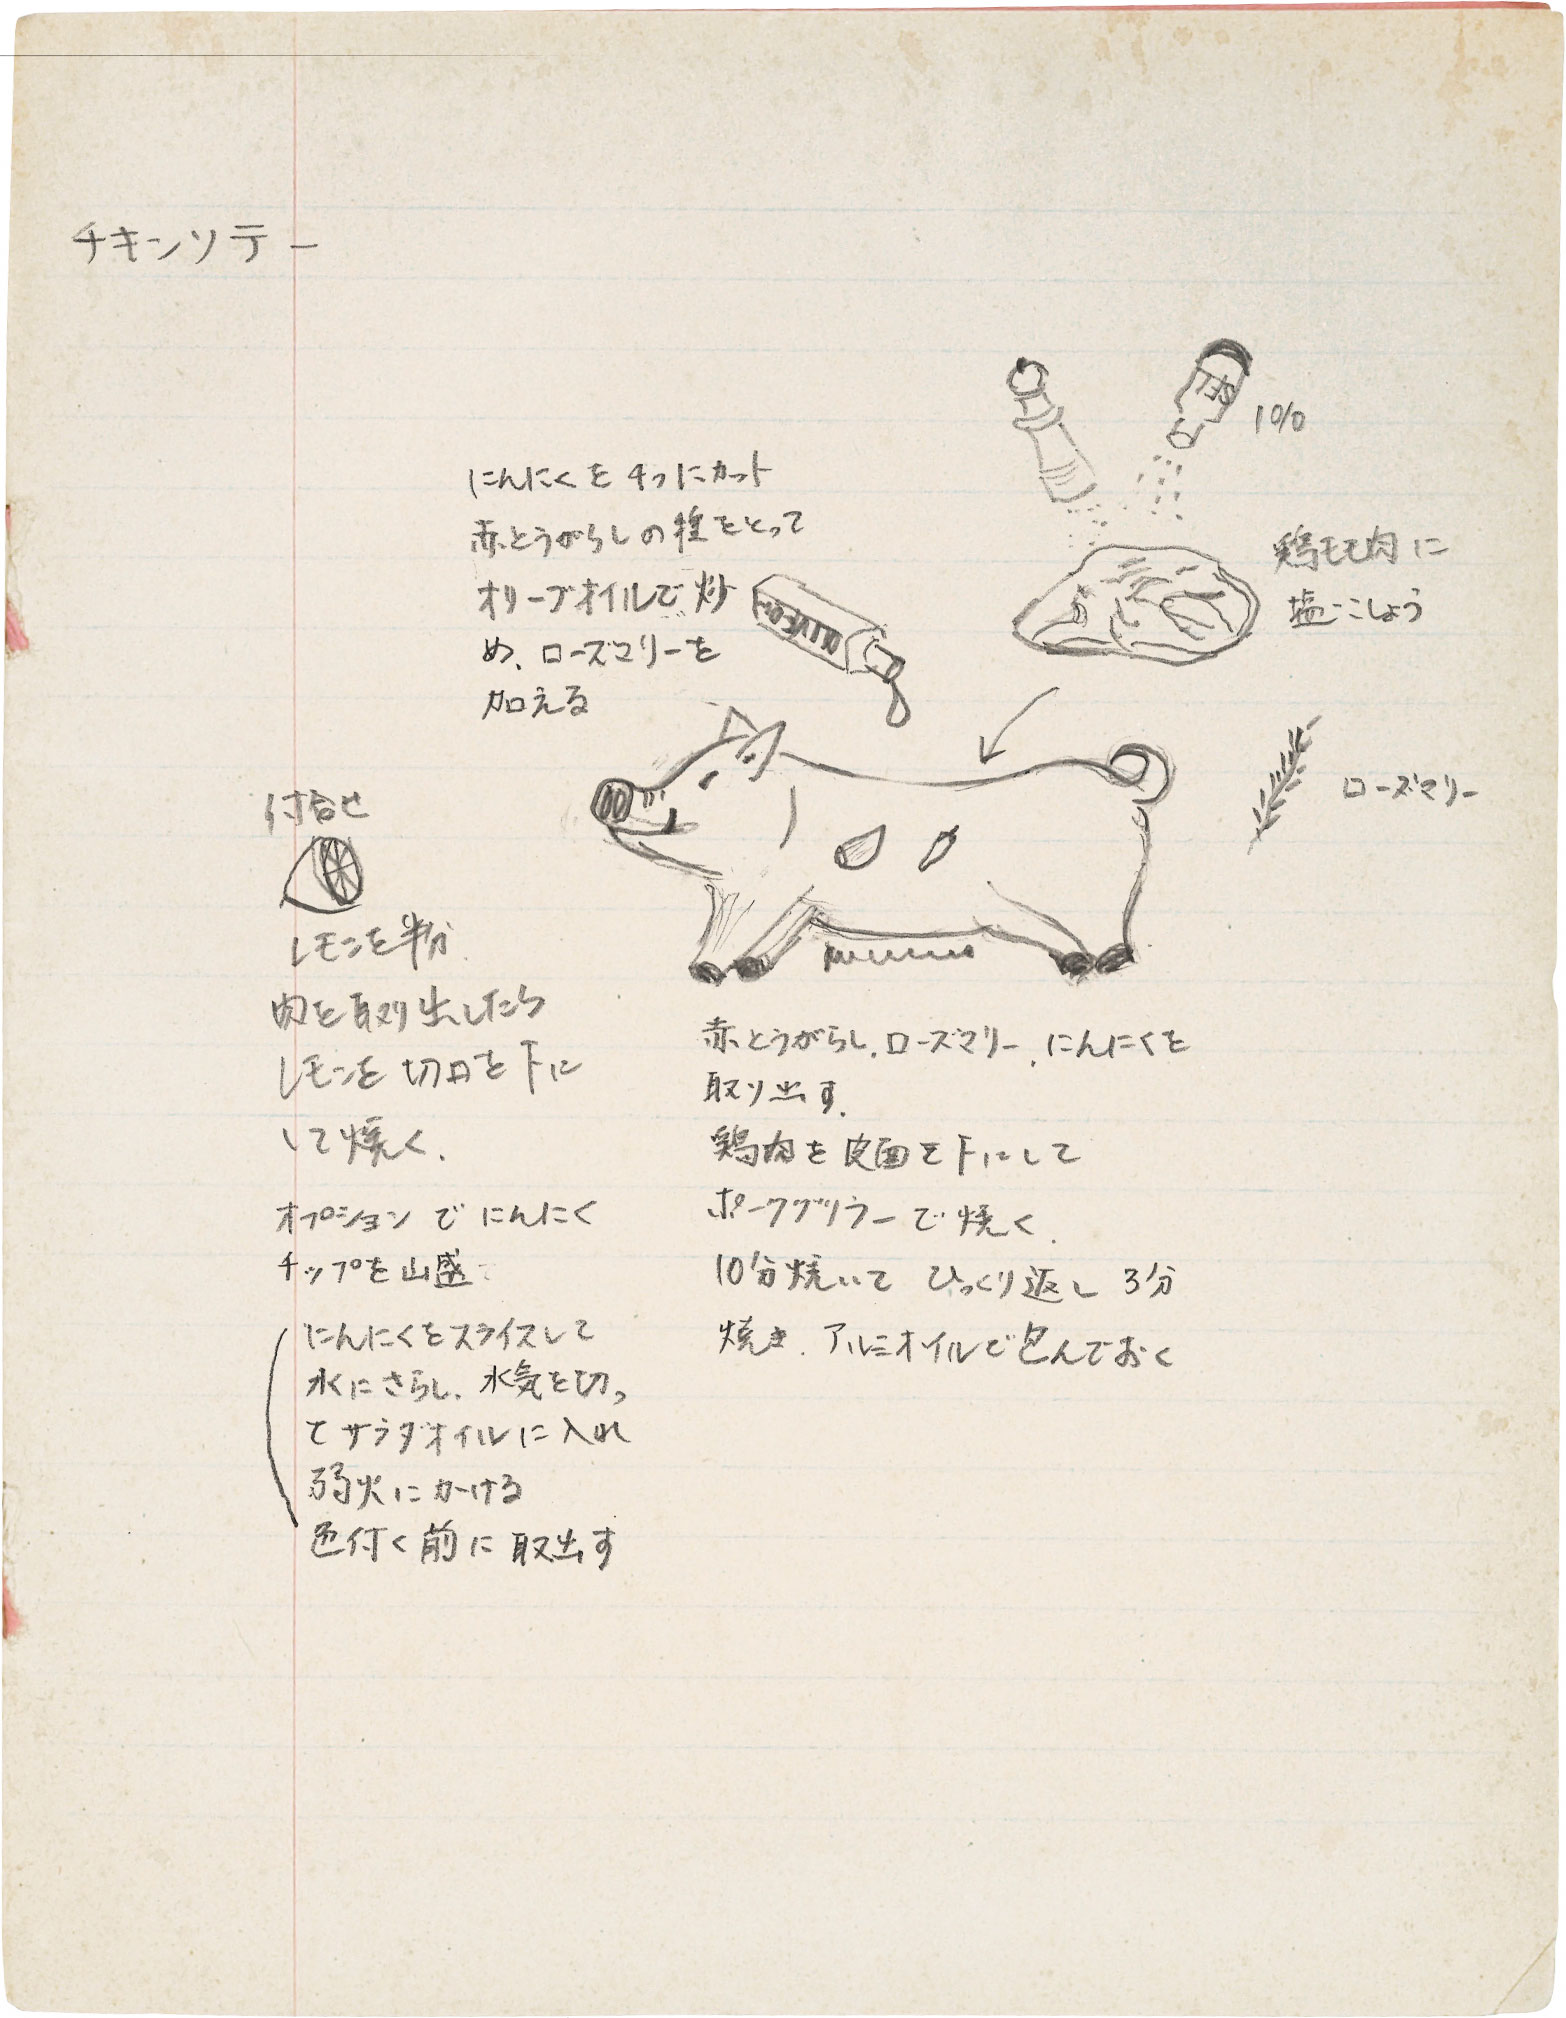 チキンソテー
SEL
1%
にんにくを4つにカット
赤とうがらしの種をとって
オリーブオイルで炒
め、ローズマリーを
加える
OLIVE OIL
鶏モモ肉に
塩こしょう
ローズマリー
付合せ
レモンを半分
肉を取り出したら
レモンを切口を下に
して焼く.
オプションでにんにく
チップを山盛
にんにくをスライスして
水にさらし、水気を切っ
てサラダオイルに入れ
弱火にかける
色付く前に取出す
赤とうがらし、ローズマリー、にんにくを
取り出す.
鶏肉を皮面を下にして
ポークグリラーで焼く.
10分焼いて ひっくり返し 3分
焼き、アルミオイルで包んでおく